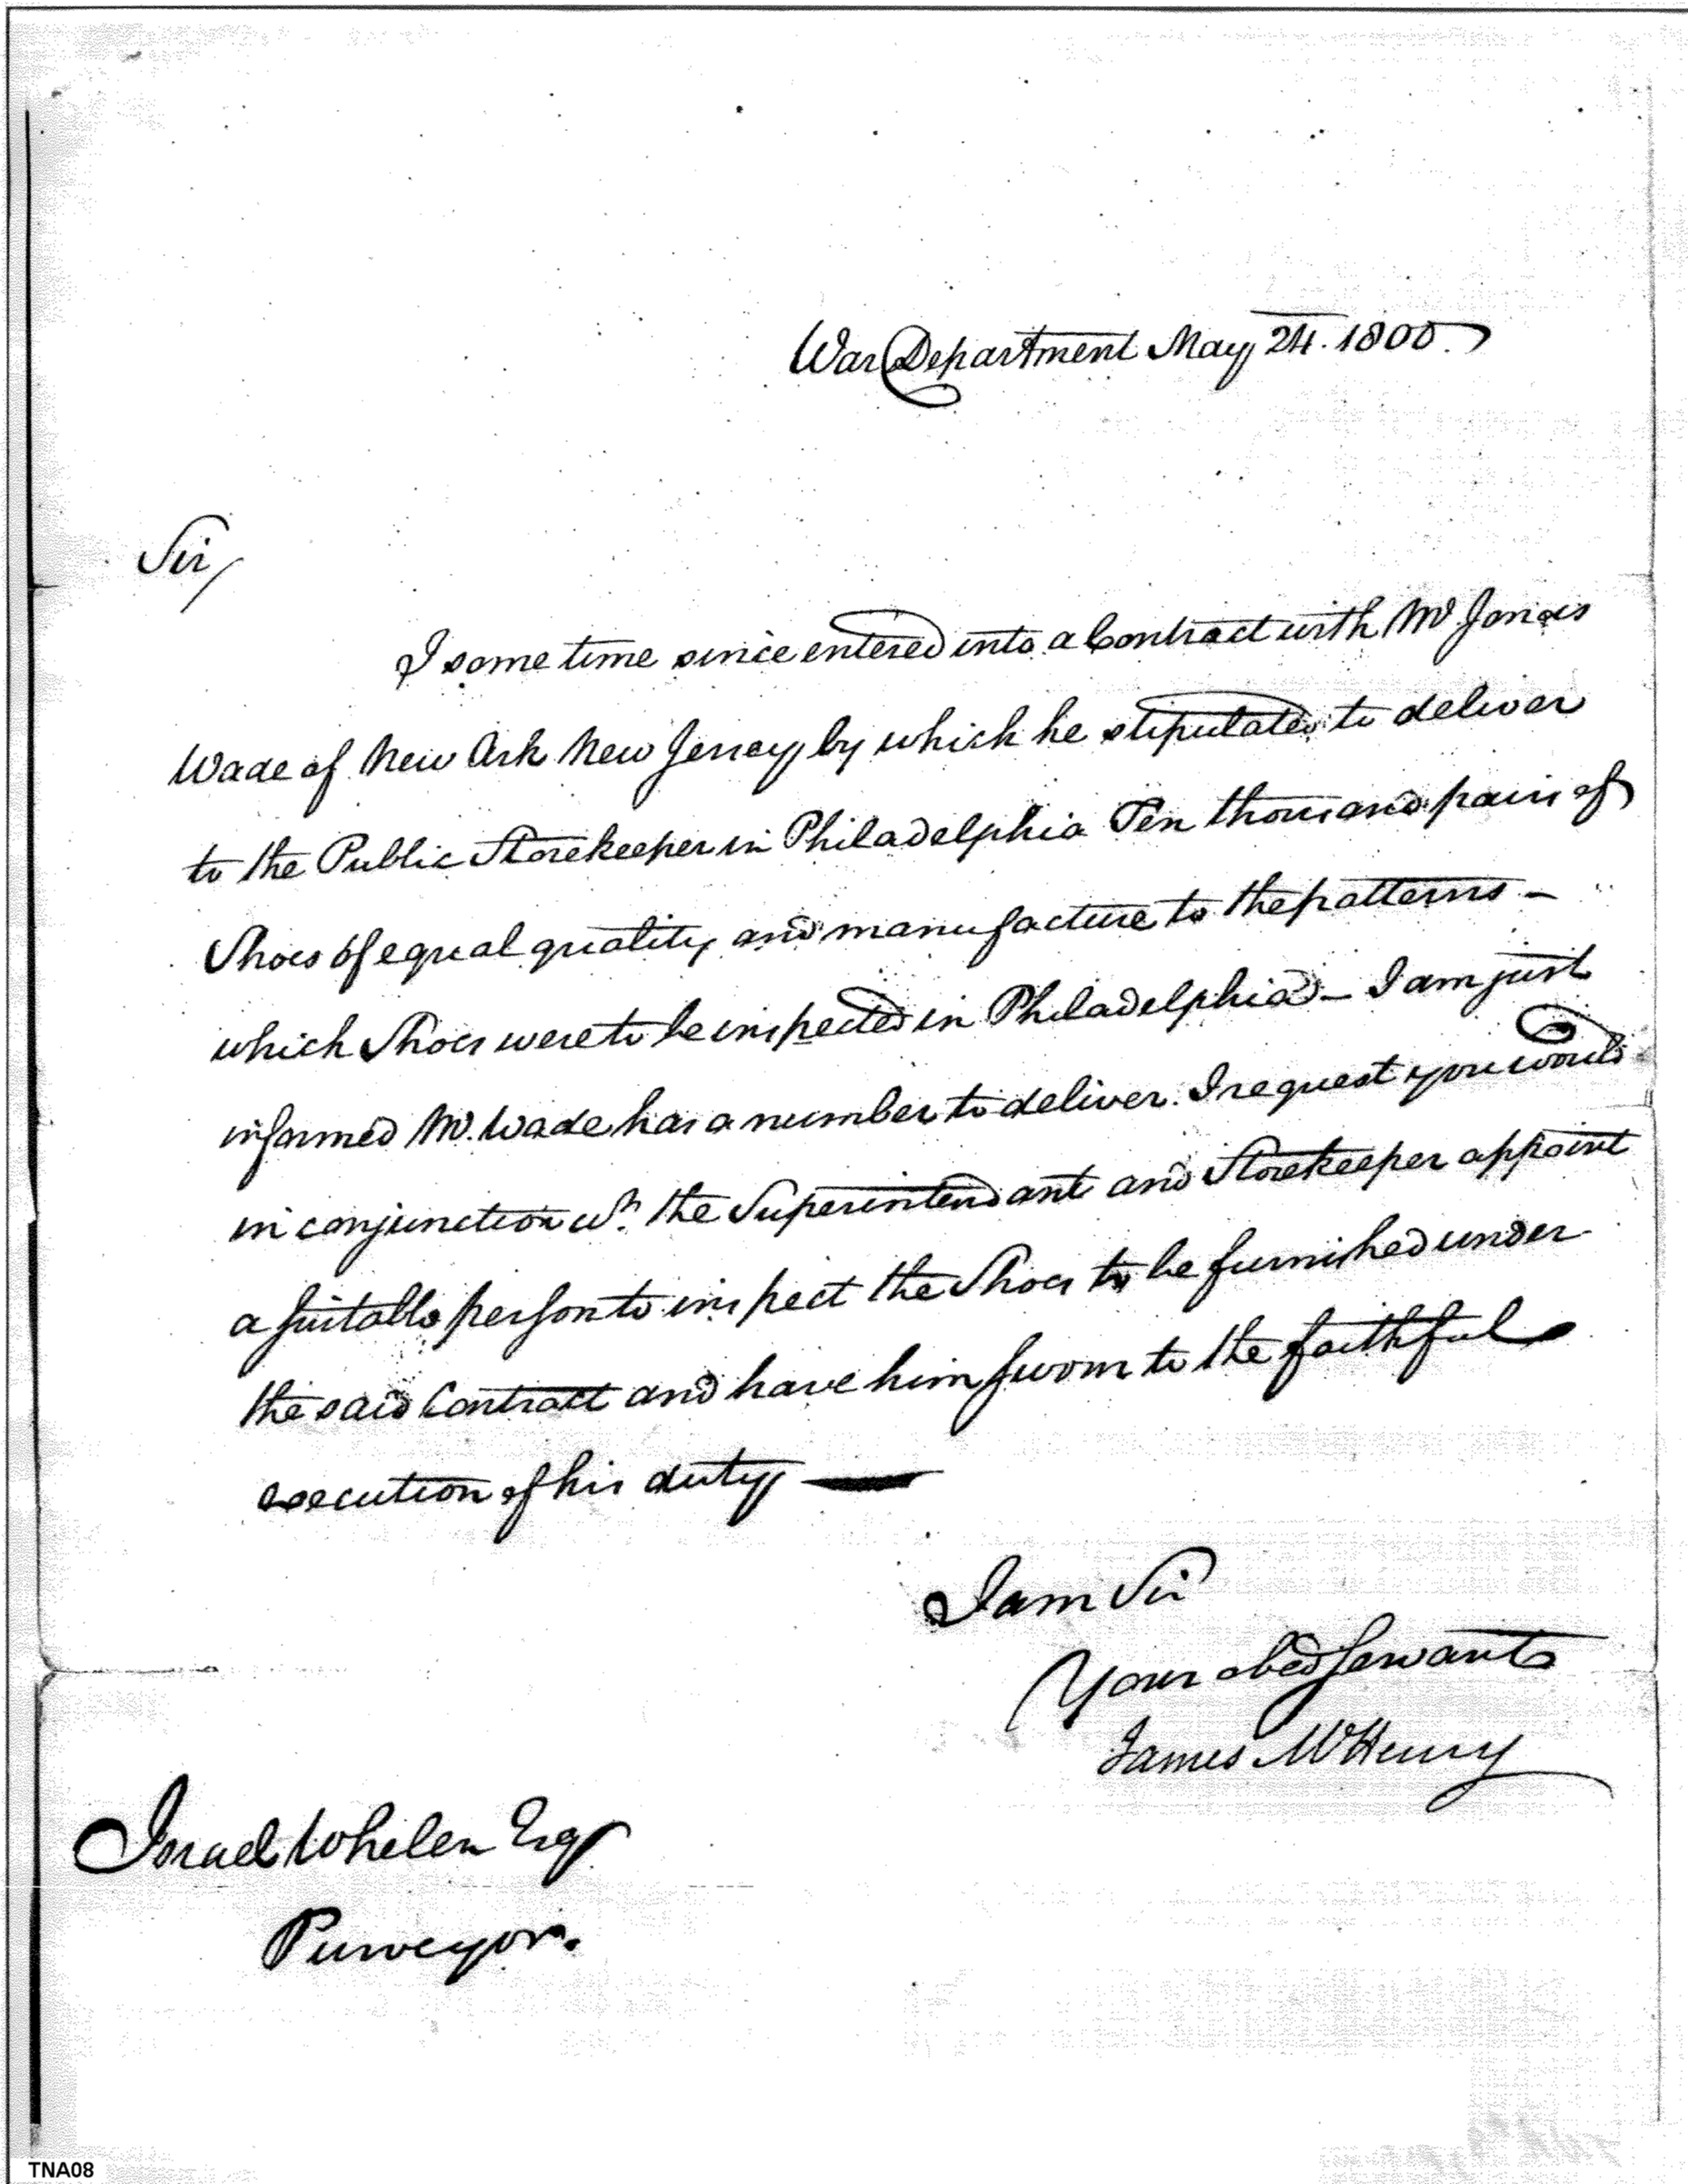 War Department May 24. 1800.
Sir,
I some time since entered into a Contract with Mr. Jonas
Wade of New Ark New Jersey by which he stipulated to deliver
to the Public Storekeeper in Philadelphia Ten thousand pairs of
Shoes of equal quality and manufacture to the patterns –
which Shoes were to be inspected in Philadelphia – I am just
informed Mr. Wade has a number to deliver. I request you would
in conjunction wh. the Superintendant and Storekeeper appoint
a suitable person to inspect the Shoes to be furnished under
the said Contract and have him sworn to the faithful
execution of his duty —
I am Sir
Your obed servant
James McHenry
Israel Whelen Esqr
Purveyor.
TNA08